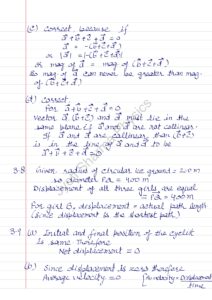 (c) Correct because if
a⃗ + b⃗ + c⃗ + d⃗ = 0
a⃗ = -(b⃗+c⃗+d⃗)
or |a⃗| = |-(b⃗+c⃗+d⃗)|
or mag of a⃗ = mag of (b⃗+c⃗+d⃗)
So mag of a⃗ can never be greater than mag.
of (b⃗+c⃗+d⃗)
(d) Correct
For a⃗+b⃗+c⃗+d⃗ = 0
Vector (b⃗+c⃗) and must lie in the
same plane if a⃗ and d⃗ are not collinear.
If a⃗ and d⃗ are collinear then (b⃗+c⃗)
is in the line of a⃗ and d⃗ to be
a⃗+b⃗+c⃗+d⃗ = 0
3.8 Given radius of circular ice ground = 200m
so diameter PQ = 400m
Displacement of all three girls are equal
= PQ = 400m
For girl B, displacement = actual path length
(since displacement is the shortest path)
3.9 (a) Initial and final position of the cyclist
is same therefore
Net displacement = 0
(b) Since displacement is zero therefore
Average velocity = 0 [∴ velocity = Displacement/time